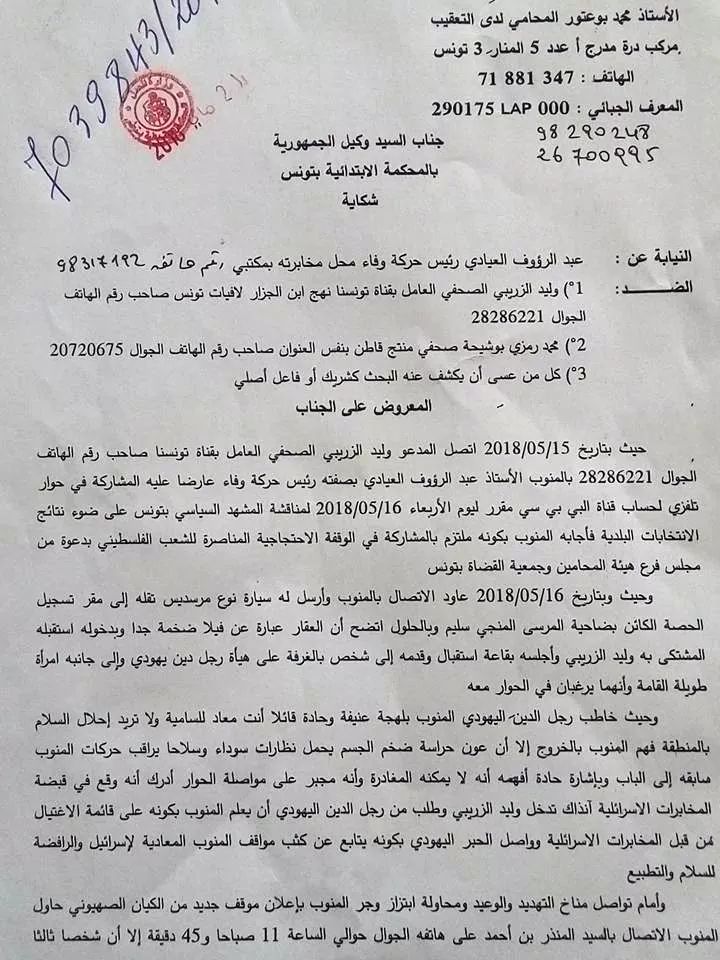 الأستاذ محمد بوعتور المحامي لدى التعقيب
مركب درة مدرج أ عدد 5 المنار 3 تونس
الهاتف : 347 881 71
المعرف الجبائي : 000 LAP 290175
98290248
26700995
7039843/20
وزارة العدل
جناب السيد وكيل الجمهورية
بالمحكمة الابتدائية بتونس
شكاية
النيابة عن : عبد الرؤوف العيادي رئيس حركة وفاء محل مخابرته بمكتبي رقم هاتفه 98317192
الضد : 1°) وليد الزريبي الصحفي العامل بقناة تونسنا نهج ابن الجزار لافيات تونس صاحب رقم الهاتف
الجوال 28286221
2°) محمد رمزي بوشيحة صحفي منتج قاطن بنفس العنوان صاحب رقم الهاتف الجوال 20720675
3°) كل من عسى أن يكشف عنه البحث كشريك أو فاعل أصلي
المعروض على الجناب
حيث بتاريخ 2018/05/15 اتصل المدعو وليد الزريبي الصحفي العامل بقناة تونسنا صاحب رقم الهاتف
الجوال 28286221 بالمنوب الأستاذ عبد الرؤوف العيادي بصفته رئيس حركة وفاء عارضا عليه المشاركة في حوار
تلفزي لحساب قناة البي بي سي مقرر ليوم الأربعاء 2018/05/16 لمناقشة المشهد السياسي بتونس على ضوء نتائج
الانتخابات البلدية فأجابه المنوب بكونه ملتزم بالمشاركة في الوقفة الاحتجاجية المناصرة للشعب الفلسطيني بدعوة من
مجلس فرع هيئة المحامين وجمعية القضاة بتونس
وحيث وبتاريخ 2018/05/16 عاود الاتصال بالمنوب وأرسل له سيارة نوع مرسديس تقله إلى مقر تسجيل
الحصة الكائن بضاحية المرسى المنجي سليم وبالحلول اتضح أن العقار عبارة عن فيلا ضخمة جدا وبدخوله استقبله
المشتكى به وليد الزريبي وأجلسه بقاعة استقبال وقدمه إلى شخص بالغرفة على هيأة رجل دين يهودي وإلى جانبه امرأة
طويلة القامة وأنهما يرغبان في الحوار معه
وحيث خاطب رجل الدين اليهودي المنوب بلهجة عنيفة وحادة قائلا أنت معاد للسامية ولا تريد إحلال السلام
بالمنطقة فهم المنوب بالخروج إلا أن عون حراسة ضخم الجسم يحمل نظارات سوداء وسلاحا يراقب حركات المنوب
سابقه إلى الباب وبإشارة حادة أفهمه أنه لا يمكنه المغادرة وأنه مجبر على مواصلة الحوار أدرك أنه وقع في قبضة
المخابرات الاسرائلية آنذاك تدخل وليد الزريبي وطلب من رجل الدين اليهودي أن يعلم المنوب بكونه على قائمة الاغتيال
من قبل المخابرات الاسرائلية وواصل الحبر اليهودي بكونه يتابع عن كثب مواقف المنوب المعادية لإسرائيل والرافضة
للسلام والتطبيع
وأمام تواصل مناخ التهديد والوعيد ومحاولة ابتزاز وجر المنوب بإعلان موقف جديد من الكيان الصهيوني حاول
المنوب الاتصال بالسيد المنذر بن أحمد على هاتفه الجوال حوالي الساعة 11 صباحا و45 دقيقة إلا أن شخصا ثالثا